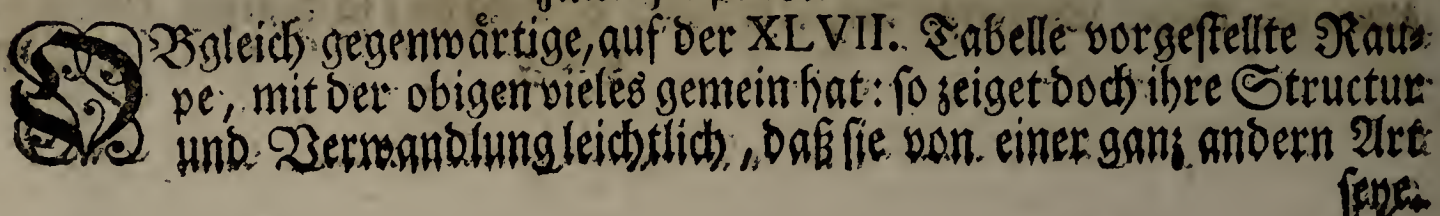 OBgleich gegenwärtige, auf der XLVII. Tabelle vorgestellte Rau-
pe, mit der obigen vieles gemein hat: so zeiget doch ihre Structur
und Verwandlung leichtlich, daß sie von einer ganz andern Art
seye.